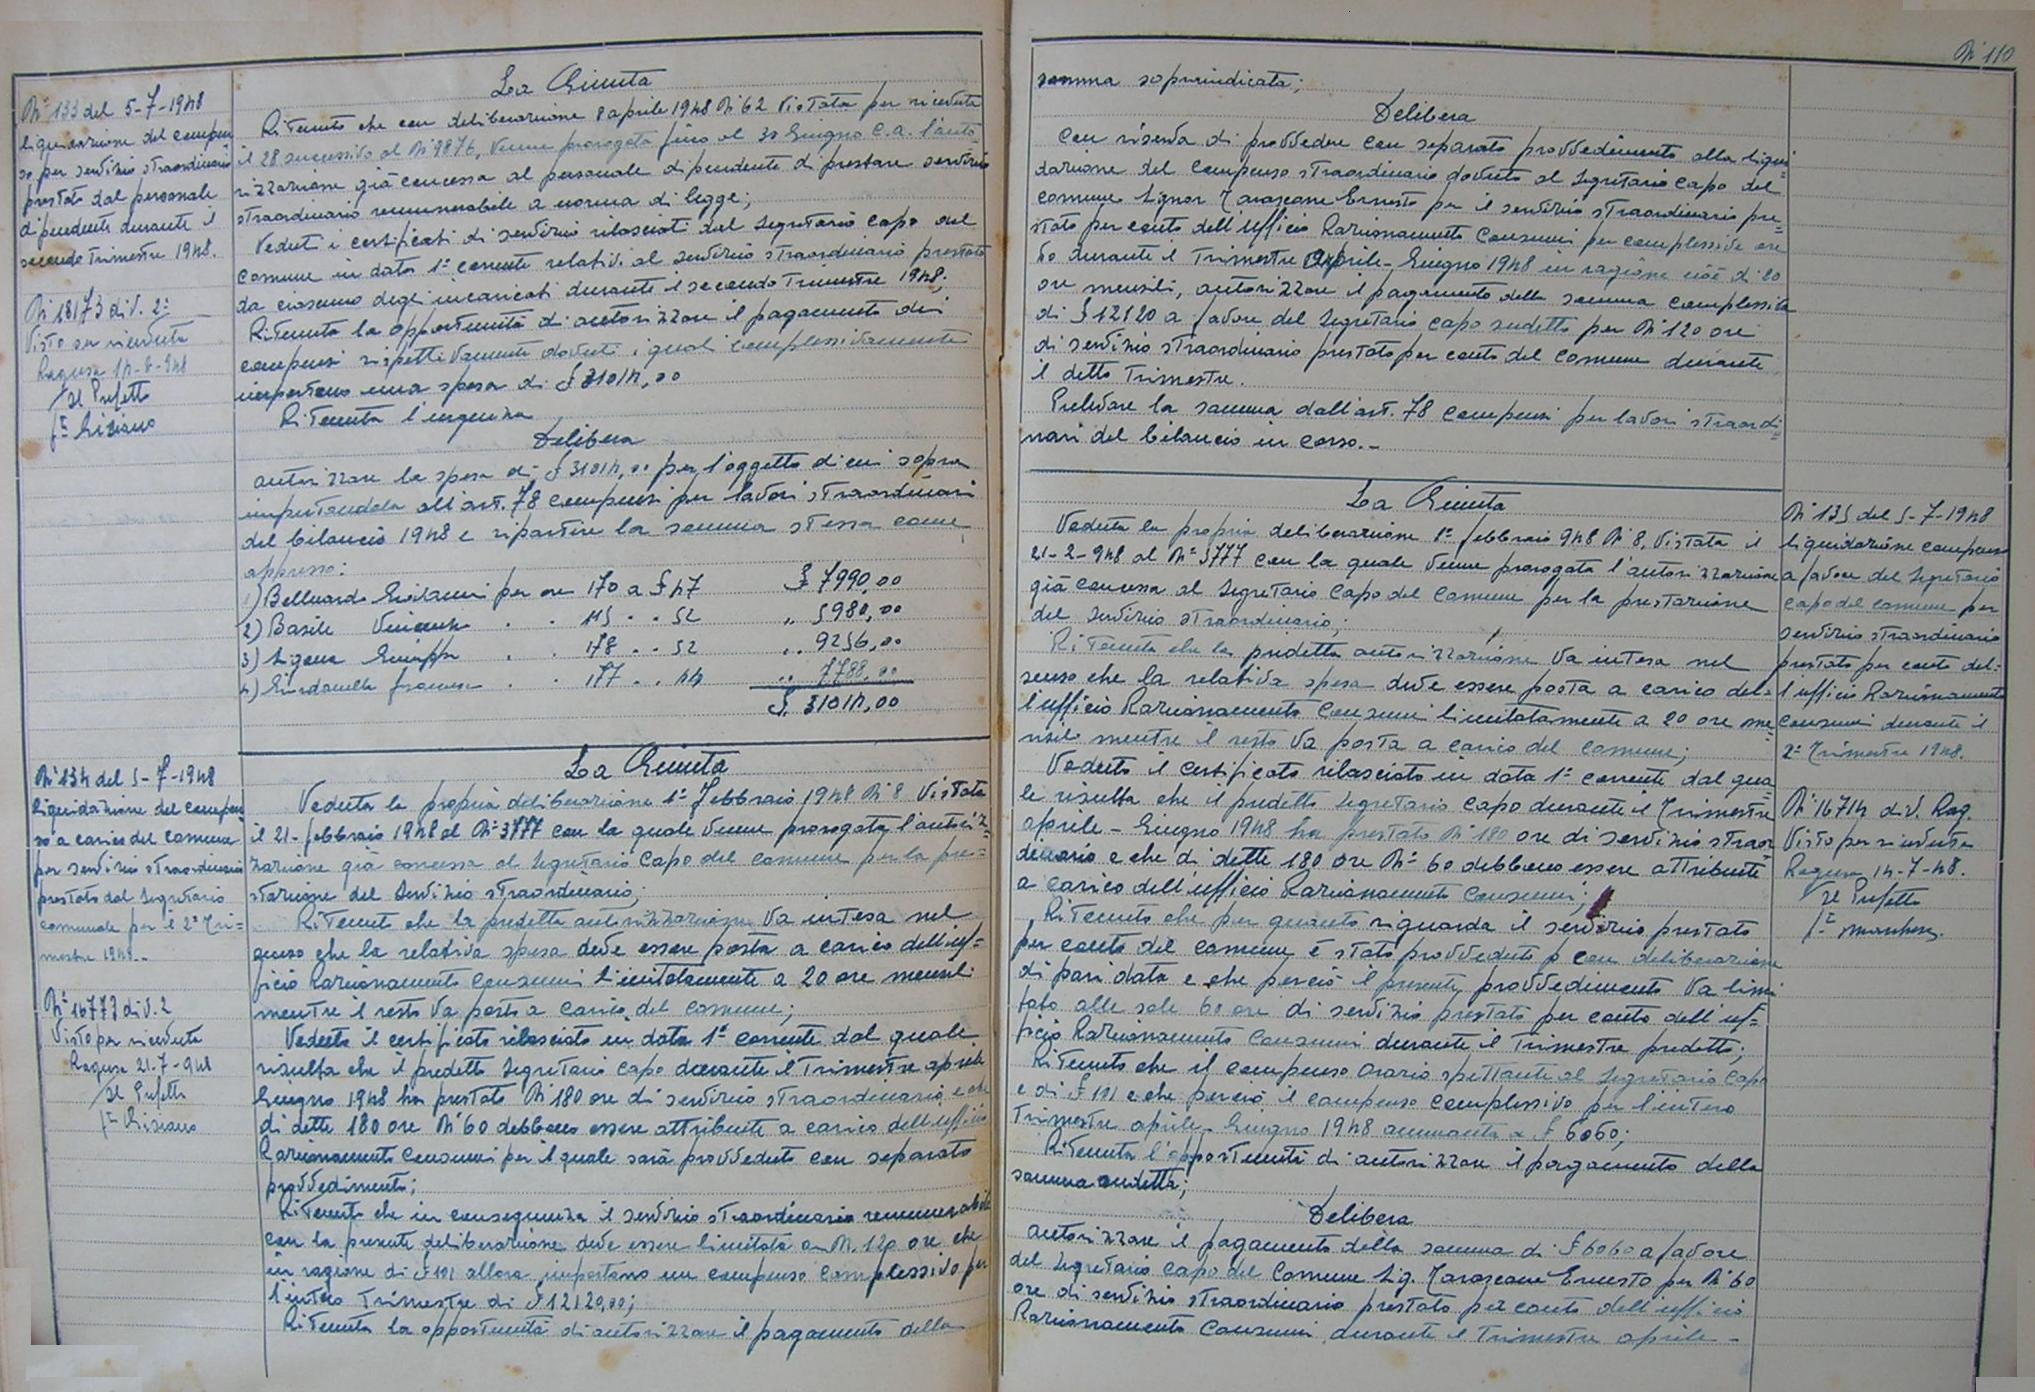 N° 133 del 5-7-1948
liquidazione del compen
so per servizio straordinario
prestato dal personale
dipendente durante il
secondo Trimestre 1948.
N° 18173 div. 2ª
Visto per ricevuta
Ragusa 14-8-948
Il Prefetto
La Giunta
Ritenuto che con deliberazione 8 aprile 1948 N° 62 Vistata per ricevuta
il 28 successivo al N° 9876, venne prorogata fino al 30 Giugno c.a. l'auto
rizzazione già concessa al personale dipendente di prestare servizio
straordinario remunerabile a norma di legge;
Veduti i certificati di servizio rilasciati dal Segretario capo del
comune in data 1° corrente relativi al servizio straordinario prestato
da ciascuno degli incaricati durante il secondo Trimestre 1948;
Ritenuta la opportunità di autorizzare il pagamento dei
compensi rispettivamente dovuti i quali complessivamente
importano una spesa di £ 31014,00
Ritenuta l'urgenza
Delibera
autorizzare la spesa di £ 31014,00 per l'oggetto di cui sopra
imputandola all'art. 78 compensi per lavori straordinari
del bilancio 1948 e ripartire la somma stessa come
appresso:
1) Belluardo Giovanni per ore 170 a £ 47 £ 7990,00
2) Basile Vincenzo . . 115 . . 52 „ 5980,00
3) Ligama Giuseppe . . 178 . . 52 „ 9256,00
4) Giurdanella Francesco . . 177 . . 44 „ 7788,00
£. 31014,00
N° 134 del 5-7-1948
liquidazione del compen
so a carico del comune
per servizio straordinario
prestato dal Segretario
comunale per il 2° Tri=
mestre 1948.-
N° 16773 div. 2
Visto per ricevuta
Ragusa 21-7-948
Il Prefetto
La Giunta
Veduta la propria deliberazione 1° Febbraio 1948 N° 8 Vistata
il 21-febbraio 1948 al N° 3777 con la quale venne prorogata l'autoriz=
zazione già concessa al Segretario Capo del comune per la pre=
stazione del servizio straordinario;
Ritenuto che la predetta autorizzazione va intesa nel
senso che la relativa spesa deve essere posta a carico dell'uf=
ficio Razionamento Consumi limitatamente a 20 ore mensili
mentre il resto va posto a carico del comune;
Veduto il certificato rilasciato in data 1° corrente dal quale
risulta che il predetto Segretario capo durante il Trimestre aprile
Giugno 1948 ha prestato N° 180 ore di servizio straordinario e che
di dette 180 ore N° 60 debbono essere attribuite a carico dell'ufficio
Razionamento Consumi per il quale sarà provveduto con separato
provvedimento;
Ritenuto che in conseguenza il servizio straordinario remunerabile
con la presente deliberazione deve essere limitato a N. 120 ore che
in ragione di £ 101 all'ora importano un compenso complessivo per
l'intero Trimestre di £ 12120,00;
Ritenuta la opportunità di autorizzare il pagamento della
N° 110
somma sopraindicata;
Delibera
Con riserva di provvedere con separato provvedimento alla liqui
dazione del compenso straordinario dovuto al Segretario Capo del
comune Signor Tarascone Ernesto per il servizio straordinario pre=
stato per conto dell'ufficio Razionamento Consumi per complessive ore
60 durante il Trimestre Aprile-Giugno 1948 in ragione cioè di 20
ore mensili, autorizzare il pagamento della somma complessiva
di £ 12120 a favore del Segretario capo sudetto per N° 120 ore
di servizio straordinario prestato per conto del comune durante
il detto Trimestre.
Prelevare la somma dall'art. 78 compensi per lavori straordi=
nari del bilancio in corso.-
La Giunta
Veduta la propria deliberazione 1° febbraio 948 N° 8, Vistata il
21-2-948 al N° 3777 con la quale venne prorogata l'autorizzazione
già concessa al Segretario Capo del comune per la prestazione
del servizio straordinario;
Ritenuto che la predetta autorizzazione va intesa nel
senso che la relativa spesa deve essere posta a carico del=
l'ufficio Razionamento Consumi limitatamente a 20 ore me
nsili mentre il resto va posta a carico del comune;
Veduto il certificato rilasciato in data 1° corrente dal qua
le risulta che il predetto Segretario capo durante il Trimestre
aprile-Giugno 1948 ha prestato N° 180 ore di servizio straor
dinario e che di dette 180 ore N° 60 debbono essere attribuite
a carico dell'ufficio Razionamento Consumi;
Ritenuto che per quanto riguarda il servizio prestato
per conto del comune è stato provveduto con deliberazione
di pari data e che perciò il presente provvedimento va limi
tato alle sole 60 ore di servizio prestato per conto dell'uf=
ficio Razionamento Consumi durante il Trimestre predetto;
Ritenuto che il compenso orario spettante al Segretario Capo
è di £ 101 e che perciò il compenso complessivo per l'intero
Trimestre aprile-Giugno 1948 ammonta a £ 6060;
Ritenuta l'opportunità di autorizzare il pagamento della
somma sudetta;
Delibera
autorizzare il pagamento della somma di £ 6060 a favore
del Segretario Capo del Comune Sig. Tarascone Ernesto per N° 60
ore di servizio straordinario prestato per conto dell'ufficio
Razionamento Consumi durante il Trimestre aprile-
N° 135 del 5-7-1948
liquidazione compenso
a favore del Segretario
capo del comune per
servizio straordinario
prestato per conto del=
l'ufficio Razionamento
consumi durante il
2° Trimestre 1948.
N° 16714 div. Rag.
Visto per ricevuta
Ragusa 14-7-48.
Il Prefetto